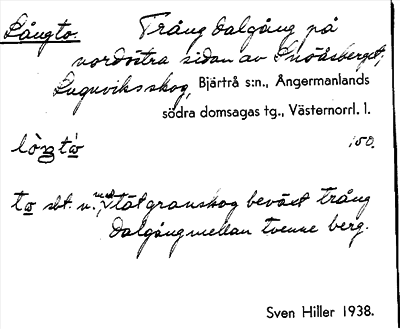 Långto. Trång dalgång på
nordöstra sidan av Snöåsberget;
Lugnviksskog, Bjärtrå s:n., Ångermanlands
södra domsagas tg., Västernorrl. l.
lòŋtω 150.
tω sbt. n., med tät granskog beväxt trång
dalgång mellan tvenne berg.
Sven Hiller 1938.